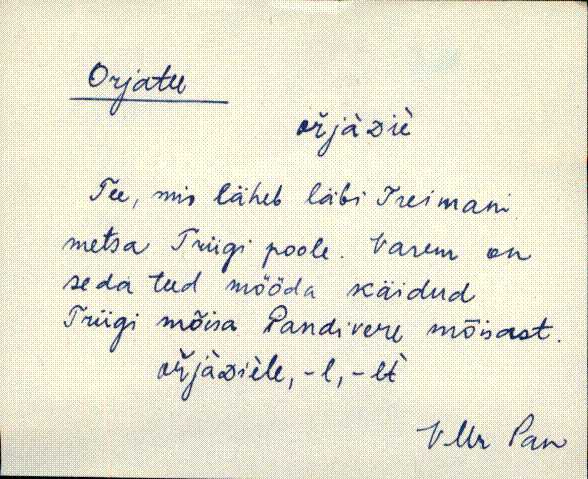 Orjatee
or̆jàᴅiè
Tee, mis läheb läbi Treimani
metsa Triigi poole. Varem on
seda teed mööda käidud
Triigi mõisa Pandivere mõisast.
or̆jàᴅièle, -l, -lt̀
VMr Pan